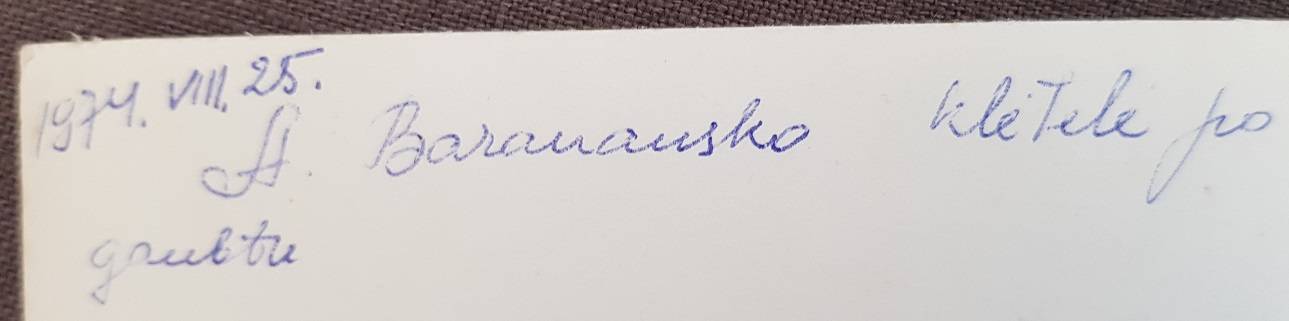 1974. VIII. 25.
A. Baranausko klėtelė po
gaubtu